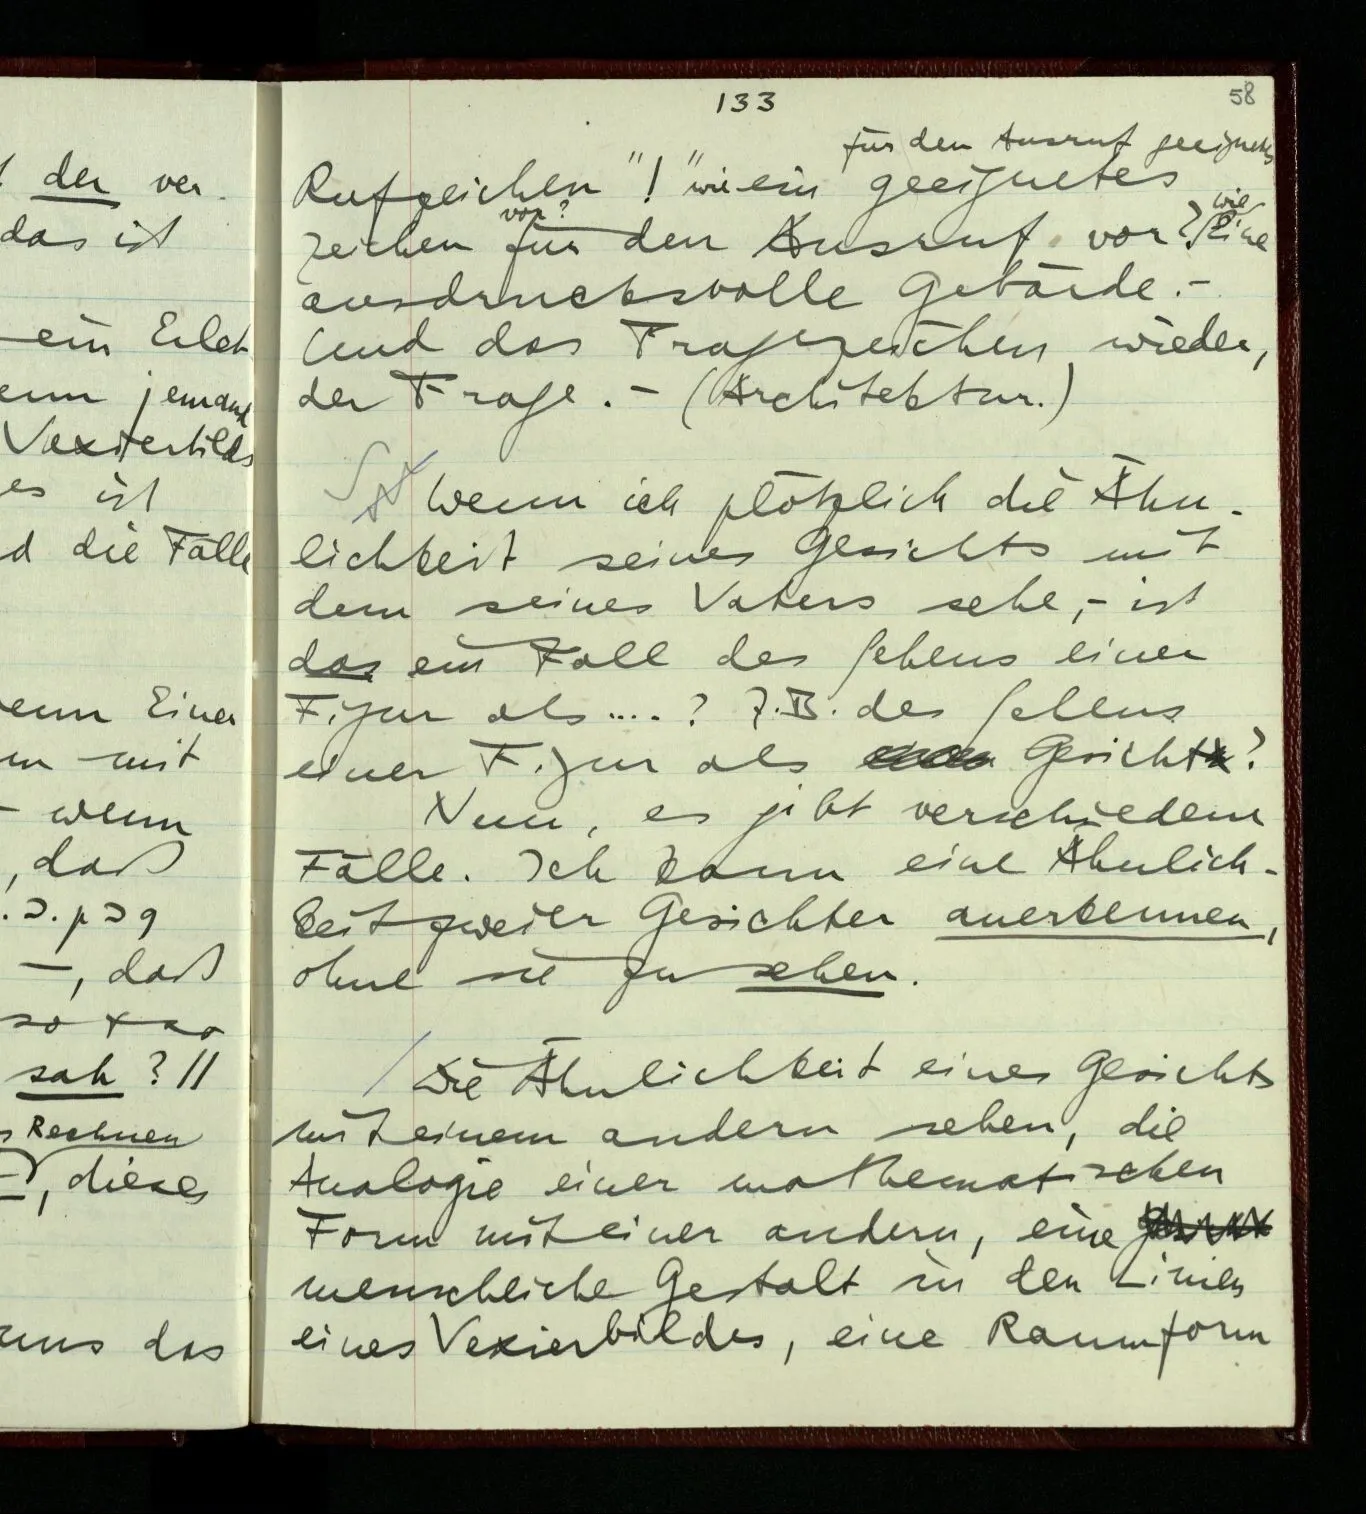 der ver-
das ist
ein
jemand
Vexierbilds
es ist
die Fälle
Einer
mit
– wenn
, daß
. ⊃ . p ⊃ q
–, daß
so + so
sah ? //
Rechnen
, dieses
uns das
133
58
für den Ausruf geeignetes
Rufzeichen "!" wie ein geeignetes
vor? wie
Zeichen für den Ausruf vor? Eine
ausdrucksvolle Gebärde. –
Und das Fragezeichen, wieder,
der Frage. – (Architektur.)
S Wenn ich plötzlich die Ähn-
lichkeit seines Gesichts mit
dem seines Vaters sehe, – ist
das ein Fall des Sehens einer
Figur als .... ? Z.B. des Sehens
einer Figur als Gesicht?
Nun, es gibt verschiedene
Fälle. Ich kann eine Ähnlich-
keit zweier Gesichter anerkennen,
ohne sie zu sehen.
/ Die Ähnlichkeit eines Gesichts
mit einem andern sehen, die
Analogie einer mathematischen
Form mit einer andern, eine
menschliche Gestalt in den Linien
eines Vexierbildes, eine Raumform